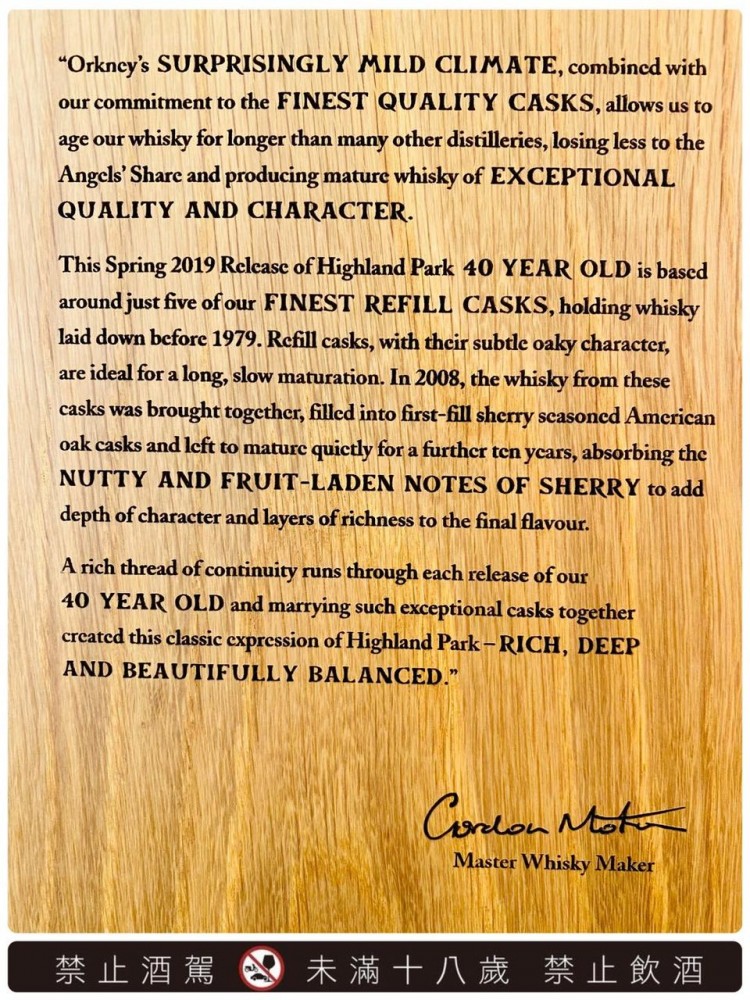 “Orkney’s SURPRISINGLY MILD CLIMATE, combined with
our commitment to the FINEST QUALITY CASKS, allows us to
age our whisky for longer than many other distilleries, losing less to the
Angels’ Share and producing mature whisky of EXCEPTIONAL
QUALITY AND CHARACTER.
This Spring 2019 Release of Highland Park 40 YEAR OLD is based
around just five of our FINEST REFILL CASKS, holding whisky
laid down before 1979. Refill casks, with their subtle oaky character,
are ideal for a long, slow maturation. In 2008, the whisky from these
casks was brought together, filled into first-fill sherry seasoned American
oak casks and left to mature quietly for a further ten years, absorbing the
NUTTY AND FRUIT-LADEN NOTES OF SHERRY to add
depth of character and layers of richness to the final flavour.
A rich thread of continuity runs through each release of our
40 YEAR OLD and marrying such exceptional casks together
created this classic expression of Highland Park – RICH, DEEP
AND BEAUTIFULLY BALANCED.”
Gordon Motion
Master Whisky Maker
禁止酒駕 未滿十八歲 禁止飲酒